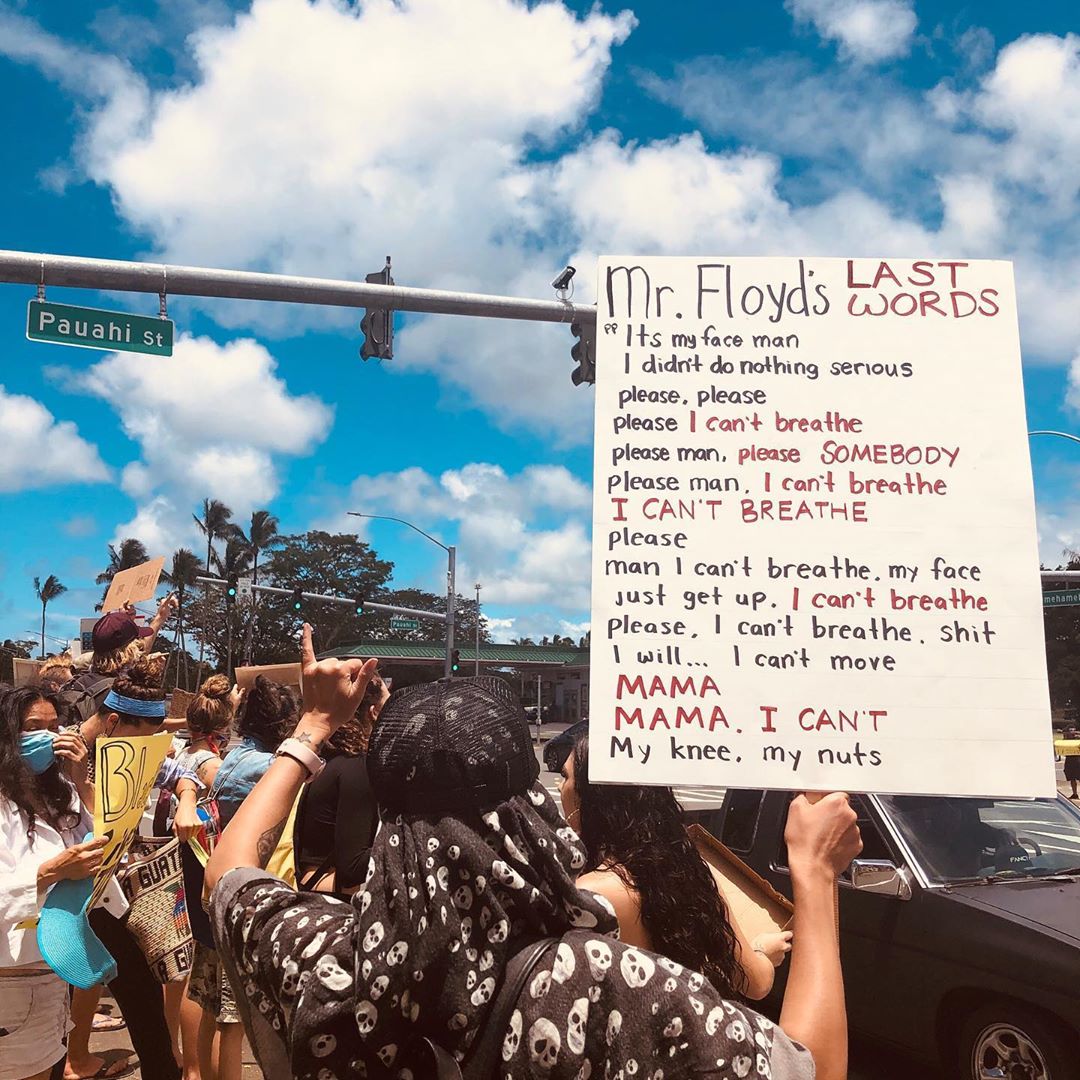 Pauahi St
Mr. Floyd's LAST WORDS
"Its my face man
I didn't do nothing serious
please, please
please I can't breathe
please man, please SOMEBODY
please man, I can't breathe
I CAN'T BREATHE
please
man I can't breathe, my face
just get up. I can't breathe
please, I can't breathe. shit
I will... I can't move
MAMA
MAMA. I CAN'T
My knee, my nuts
Pauahi St
FANCI